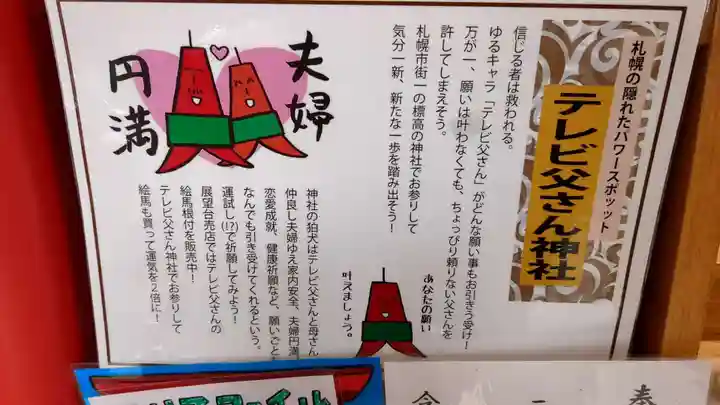 札幌の隠れたパワースポット
テレビ父さん神社
信じる者は救われる。
ゆるキャラ「テレビ父さん」がどんな願い事もお引きう受け!
万が一、願いは叶わなくても、ちょっぴり頼りない父さんを
許してしまえそう。
札幌市街一の標高の神社でお参りして
気分一新、新たな一歩を踏み出そう!
夫婦
円満
神社の狛犬はテレビ父さんと母さん
仲良し夫婦ゆえ家内安全、夫婦円満
恋愛成就、健康祈願など、願いごと
なんでも引き受けてくれるという。
運試し(!?)で祈願してみよう!
展望台売店ではテレビ父さんの
絵馬根付を販売中!
テレビ父さん神社でお参りして
絵馬も買って運気を2倍に!
あなたの願い
叶えましょう。
奉
二
令